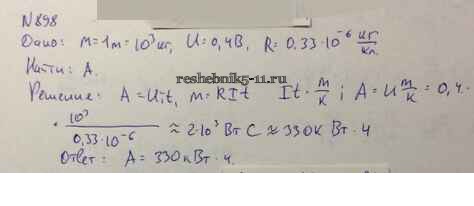 N 898
Дано: m=1т=10³кг, U=0,4В, R=0,33·10⁻⁶ кг/кл.
Найти: A.
reshebnik5-11.ru
Решение: A=Uit, m=RIt It·m/к ; A=U m/к = 0,4·
· 10³/0,33·10⁻⁶ ≈ 2·10³ Вт С ≈ 330к Вт·ч
Ответ: A = 330кВт·ч.